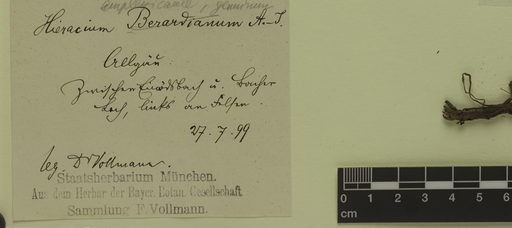 Hieracium Berardianum A.-T.
Allgäu:
Zwischen Einödsbach u. Bacher
loch, links an Felsen.
27.7.99
leg Dr Vollmann.
Staatsherbarium München.
Aus dem Herbar der Bayer. Botan. Gesellschaft
Sammlung F. Vollmann.
0 1 2 3 4 5 6
cm